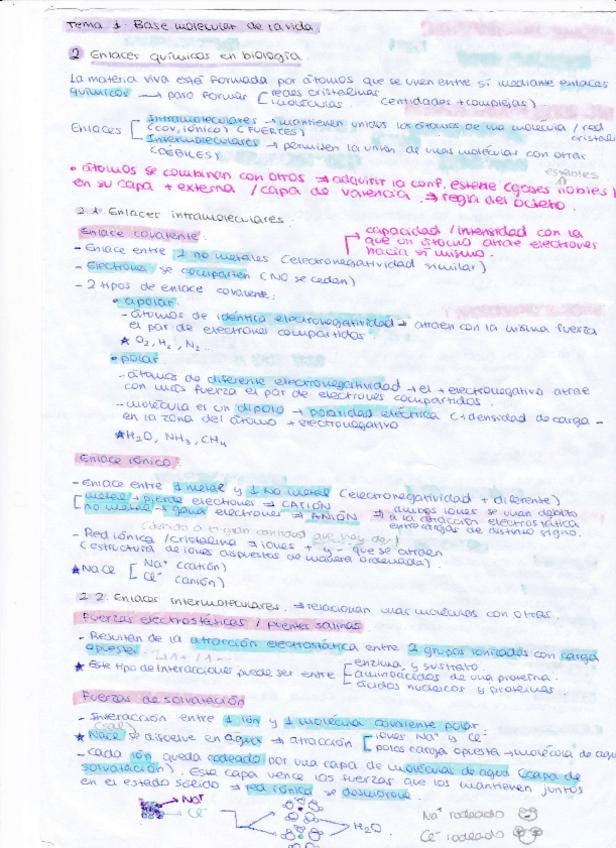 Tema 1. Base molecular de la vida.
2 Enlaces químicos en biología.
La materia viva está formada por átomos que se unen entre sí mediante enlaces
químicos → para formar [ redes cristalinas
moléculas. (entidades + complejas)
Enlaces [ Intramoleculares → mantienen unidos los átomos de una molécula / red
(cov, iónico) (FUERTES) cristalina
Intermoleculares → permiten la unión de unas moléculas con otras
(DÉBILES)
estables
• átomos se combinan con otros ⇒ adquirir la conf. estable (gases nobles)
en su capa + externa / capa de valencia. ⇒ regla del octeto.
2.1. Enlaces intramoleculares.
Enlace covalente.
capacidad / intensidad con la
que un átomo atrae electrones
hacia sí mismo.
- Enlace entre 2 no metales (electronegatividad similar)
- Electrones se comparten (NO se cedan)
- 2 tipos de enlace covalente:
• apolar
- átomos de idéntica electronegatividad → atraen con la misma fuerza
el par de electrones compartidos
★ O2, H2, N2...
• polar
- átomos de diferente electronegatividad → el + electronegativo atrae
con más fuerza el par de electrones compartidos.
- molécula es un dipolo → polaridad eléctrica (+ densidad de carga -
en la zona del átomo + electronegativo
★ H2O, NH3, CH4
Enlace iónico.
- Enlace entre 1 metal y 1 No metal (electronegatividad + diferente)
[ metal → pierde electrones ⇒ CATIÓN
no metal → gana electrones ⇒ ANIÓN ⇒ ambos iones se unen debido
a la atracción electrostática
entre cargas de distinto signo.
(debido a la gran cantidad que hay de)
- Red iónica / cristalina ⇒ iones + y - que se atraen
(estructura de iones dispuestos de manera ordenada)
★ NaCl [ Na+ (catión)
Cl- (anión)
2.2. Enlaces intermoleculares. ⇒ relacionan unas moléculas con otras.
Fuerzas electrostáticas / puentes salinos
- Resultan de la atracción electrostática entre 2 grupos ionizados con carga
opuesta
★ Este tipo de interacciones puede ser entre [ enzima y sustrato.
aminoácidos de una proteína.
ácidos nucleicos y proteínas.
Fuerzas de solvatación
- Interacción entre 1 ión y 1 molécula covalente polar.
(sal)
★ NaCl se disuelve en agua → atracción [ iones Na+ y Cl-
polos carga opuesta → molécula de agua
- cada ión queda rodeado por una capa de moléculas de agua (capa de
solvatación). Esta capa vence las fuerzas que los mantienen juntos
en el estado sólido → red iónica se desmorona.
Na+
Cl-
H2O
Na+ rodeado
Cl- rodeado